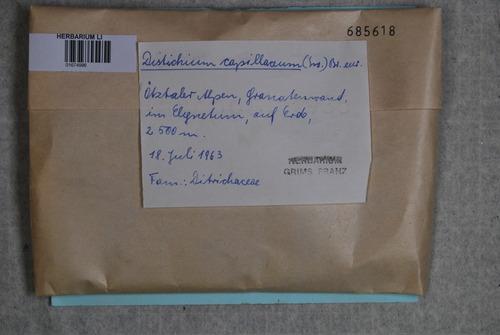 HERBARIUM LI
685618
Distichium capillaceum (Sw.) Br. eur.
Ötztaler Alpen, Granatenwand,
im Elynetum, auf Erde,
2 500 m.
18. Juli 1963
HERBARIUM
GRIMS FRANZ
Fam.: Ditrichaceae